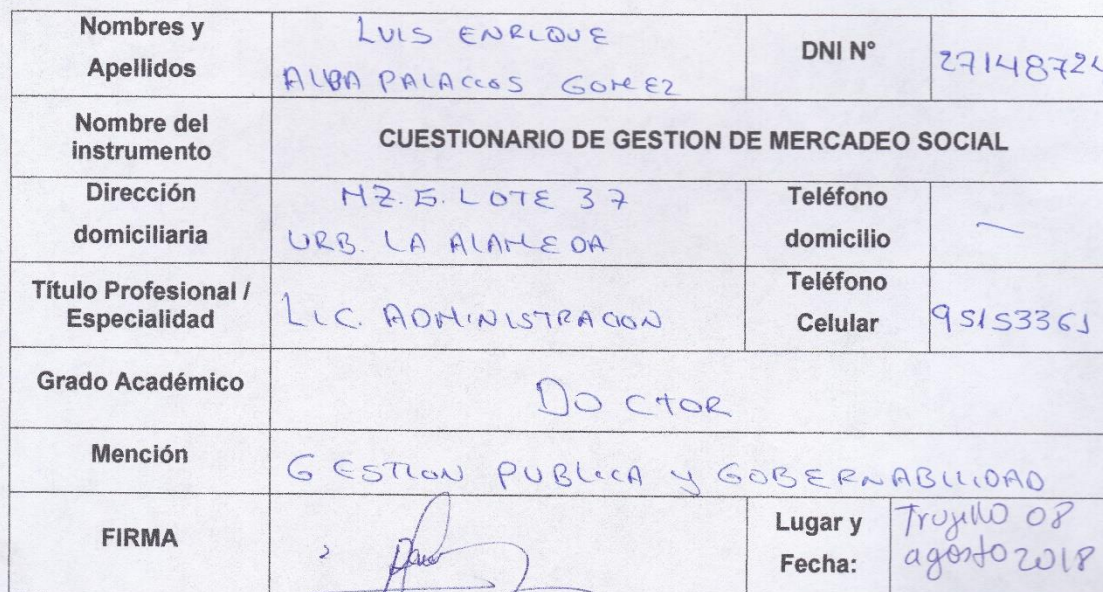 Nombres y Apellidos
LUIS ENRIQUE
ALBA PALACIOS GOMEZ
DNI N°
2714872
Nombre del instrumento
CUESTIONARIO DE GESTION DE MERCADEO SOCIAL
Dirección domiciliaria
MZ. E. LOTE 37
URB. LA ALAMEDA
Teléfono domicilio
—
Título Profesional / Especialidad
LIC. ADMINISTRACION
Teléfono Celular
95153361
Grado Académico
DOCTOR
Mención
GESTION PUBLICA y GOBERNABILIDAD
FIRMA
Lugar y Fecha:
Trujillo 08
agosto 2018